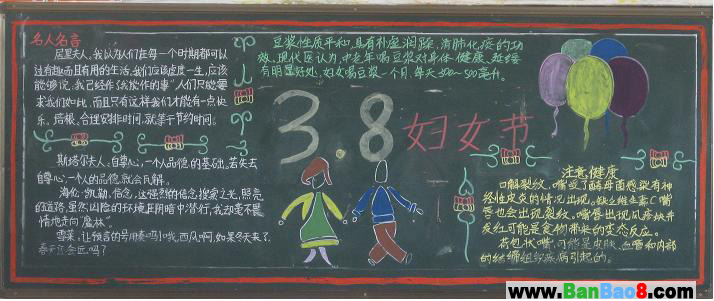 名人名言
居里夫人,我以为人们在每一个时期都可以
过有趣而且有用的生活,我们应该虚度一生,应该
能够说,我已经作了我能作的事"人们只能要
求我们如此,而且只有这样我们才能有一点快
乐,培根,合理安排时间,就等于节约时间。
斯塔尔夫人,自尊心,一个人品德的基础,若失去
自尊心,一个人的品德就会瓦解。
海伦·凯勒,信念,这强烈的信念搜索之光,照亮
的道路,虽然凶险的环境在阴暗中潜行,我却毫不畏
惧地走向"魔林"
雪莱,让预言的号角奏鸣!哦,西风啊,如果冬天来了,
春天还会远吗?
豆浆性质平和,具有补虚润燥、清肺化痰的功
效,现代医认为,中老年喝豆浆对身体健康、延缓
有明显好处,妇女喝豆浆一个月,每天300~500毫升。
3.8
妇女节
注意健康
口角裂纹,嘴受了酵母菌感染有神
经性皮炎的情况出现。缺乏维生素C嘴
唇也会出现裂纹。嘴唇出现
发红可能是食物带来的变态反应。
若包状嘴,可能是皮肤、血管和内部
的结缔组织疾病引起的。
www.BanBao8.com